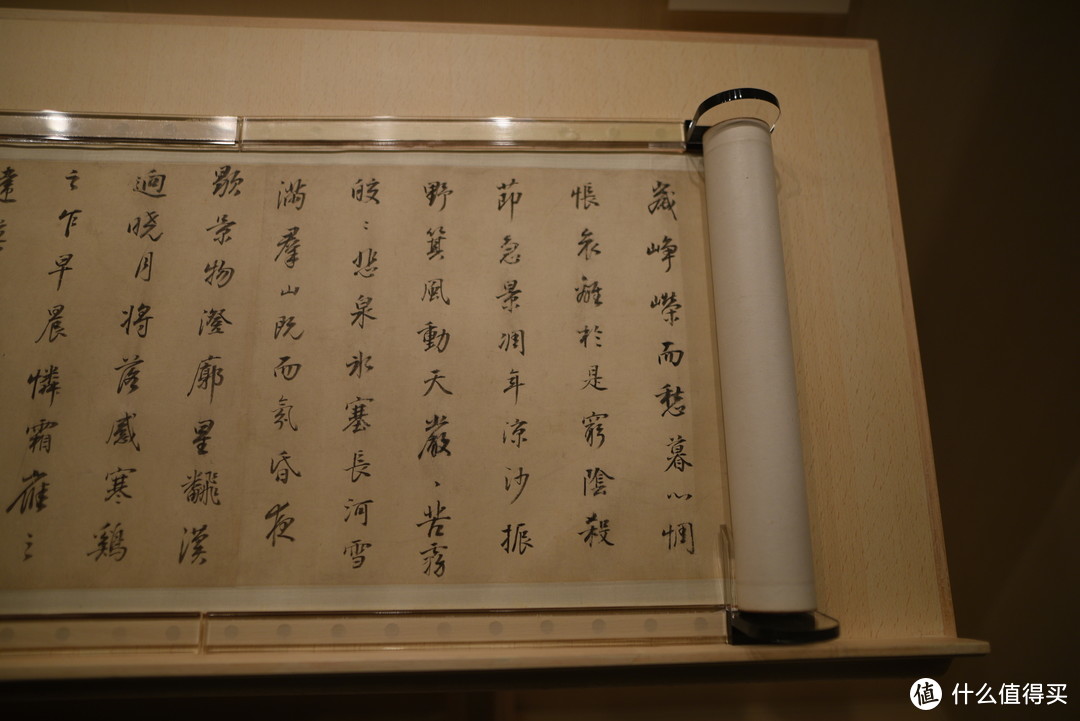 歲崢嶸而愁暮心惆
悵哀離於是窮陰殺
節急景凋年涼沙振
野箕風動天嚴〻苦霧
皎〻悲泉氷塞長河雪
滿羣山既而氛昏夜
歇景物澄廓星翻漢
迴曉月將落感寒鷄
之乍早晨憐霜雁之
違
值 什么值得买